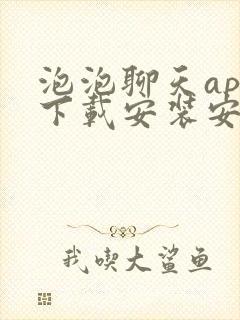 泡泡聊天ap
下载安装安
我喫大鲨鱼